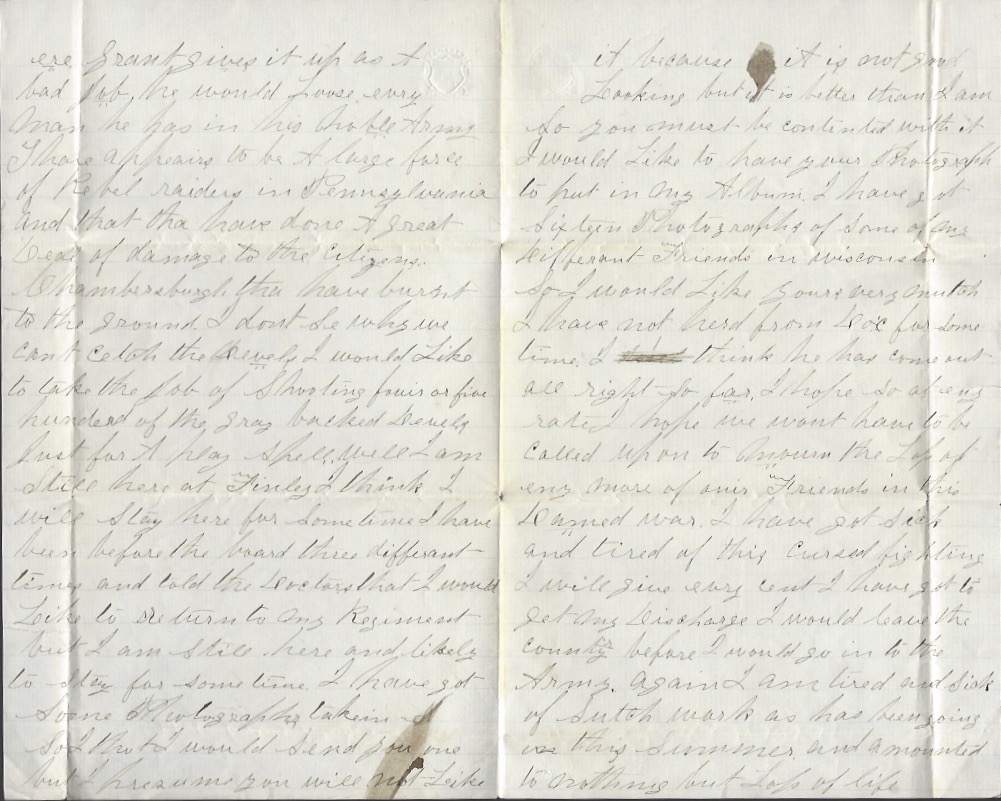 ere grant gives it up as A
bad Job, he would Loose evry
Man he has in his whole Army
Thare appears to be A large force
of Rebel raiders in Pennsylvania
and that tha have done A great
Deal of damage to the Citizens.
Chambersburgh tha have burnt
to the ground. I dont Se why we
cant cetch the Devels I would Like
to take the Job of Shooting fouir or five
hunderd of the gray backed Devels
Just for A play spell, will I am
Still here at Finley I think I
will stay here for Sometime I have
been before the board three different
times and told the Doctors that I would
Like to return to my Regiment
but I am still here and likely
to stay for sometime. I have got
Some Photographs takein
So I thot I would Send you one
but I presume you will not Like
it because it is not good
Looking but it is better than I am
So you must be contented with it
I would Like to have your Photograph
to put in my Album, I have got
Sixteen Photographs of Some of my
Differant Friends in wisconsin
So I would Like yours very mutch
I have not herd from Doc for some
time. I think he has come out
all right So far, I hope So at eny
rate I hope we wont have to be
called upon to mourn the Loss of
eny more of ouir Friends in this
Damed war. I have got sick
and tired of this cursed fighting
I will give evry cent I have got to
get my Discharge I would leave the
country before I would go in to the
Army. again I am tired and Sick
of sutch work as has been going
on this Summer and amounted
to nothing but Loss of life